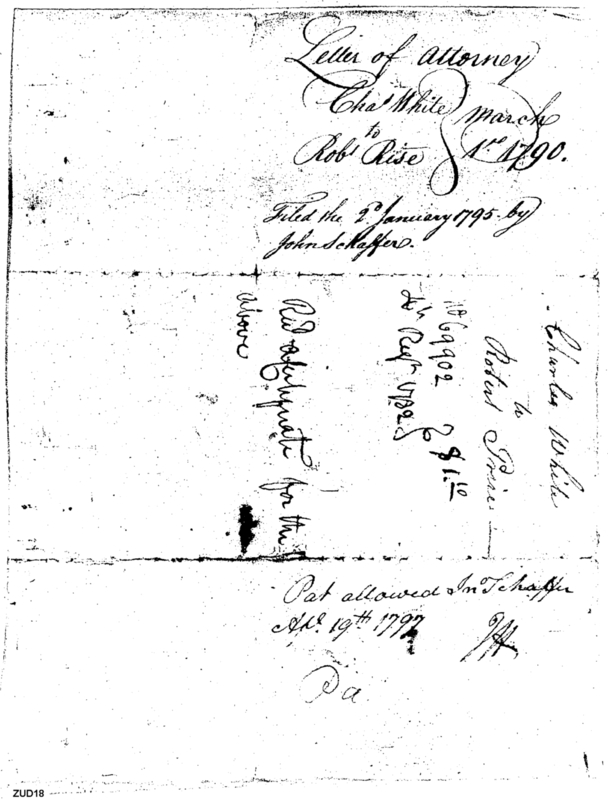 Letter of Attorney
Chas White
to
Robt Rise
March
1st 1790.
Filed the 2d January 1795 by
John Schaffer.
Charles White
to
Robert Price
No 69902
4th Regt 1782
$1.10
Recd a Certificate for the
above
Pat allowed Jno Schaffer
Apl. 19th 1797
Pa
ZUD18